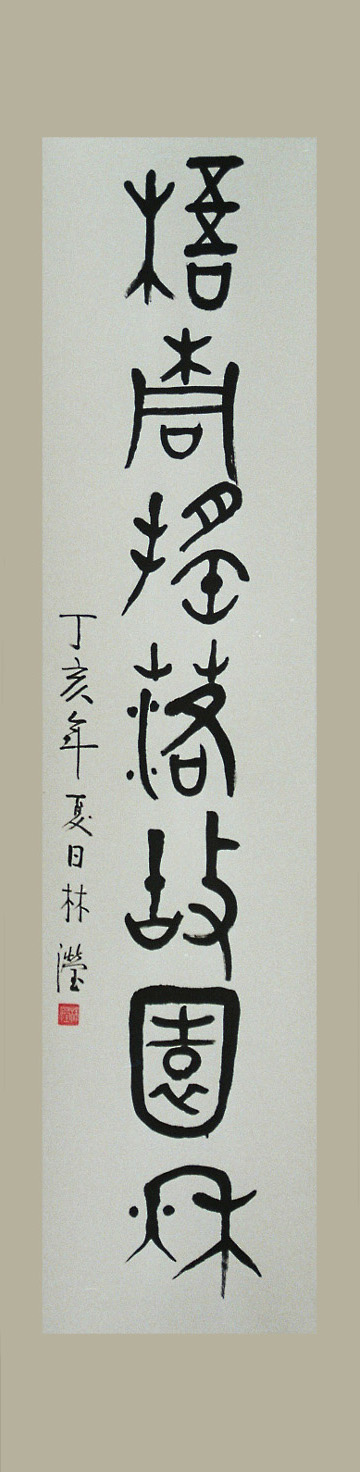 梧桐搖落故園秋
丁亥年夏日林瀅